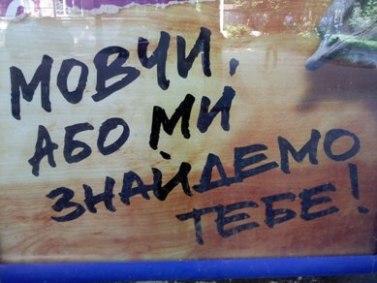 МОВЧИ,
АБО МИ
ЗНАЙДЕМО
ТЕБЕ!